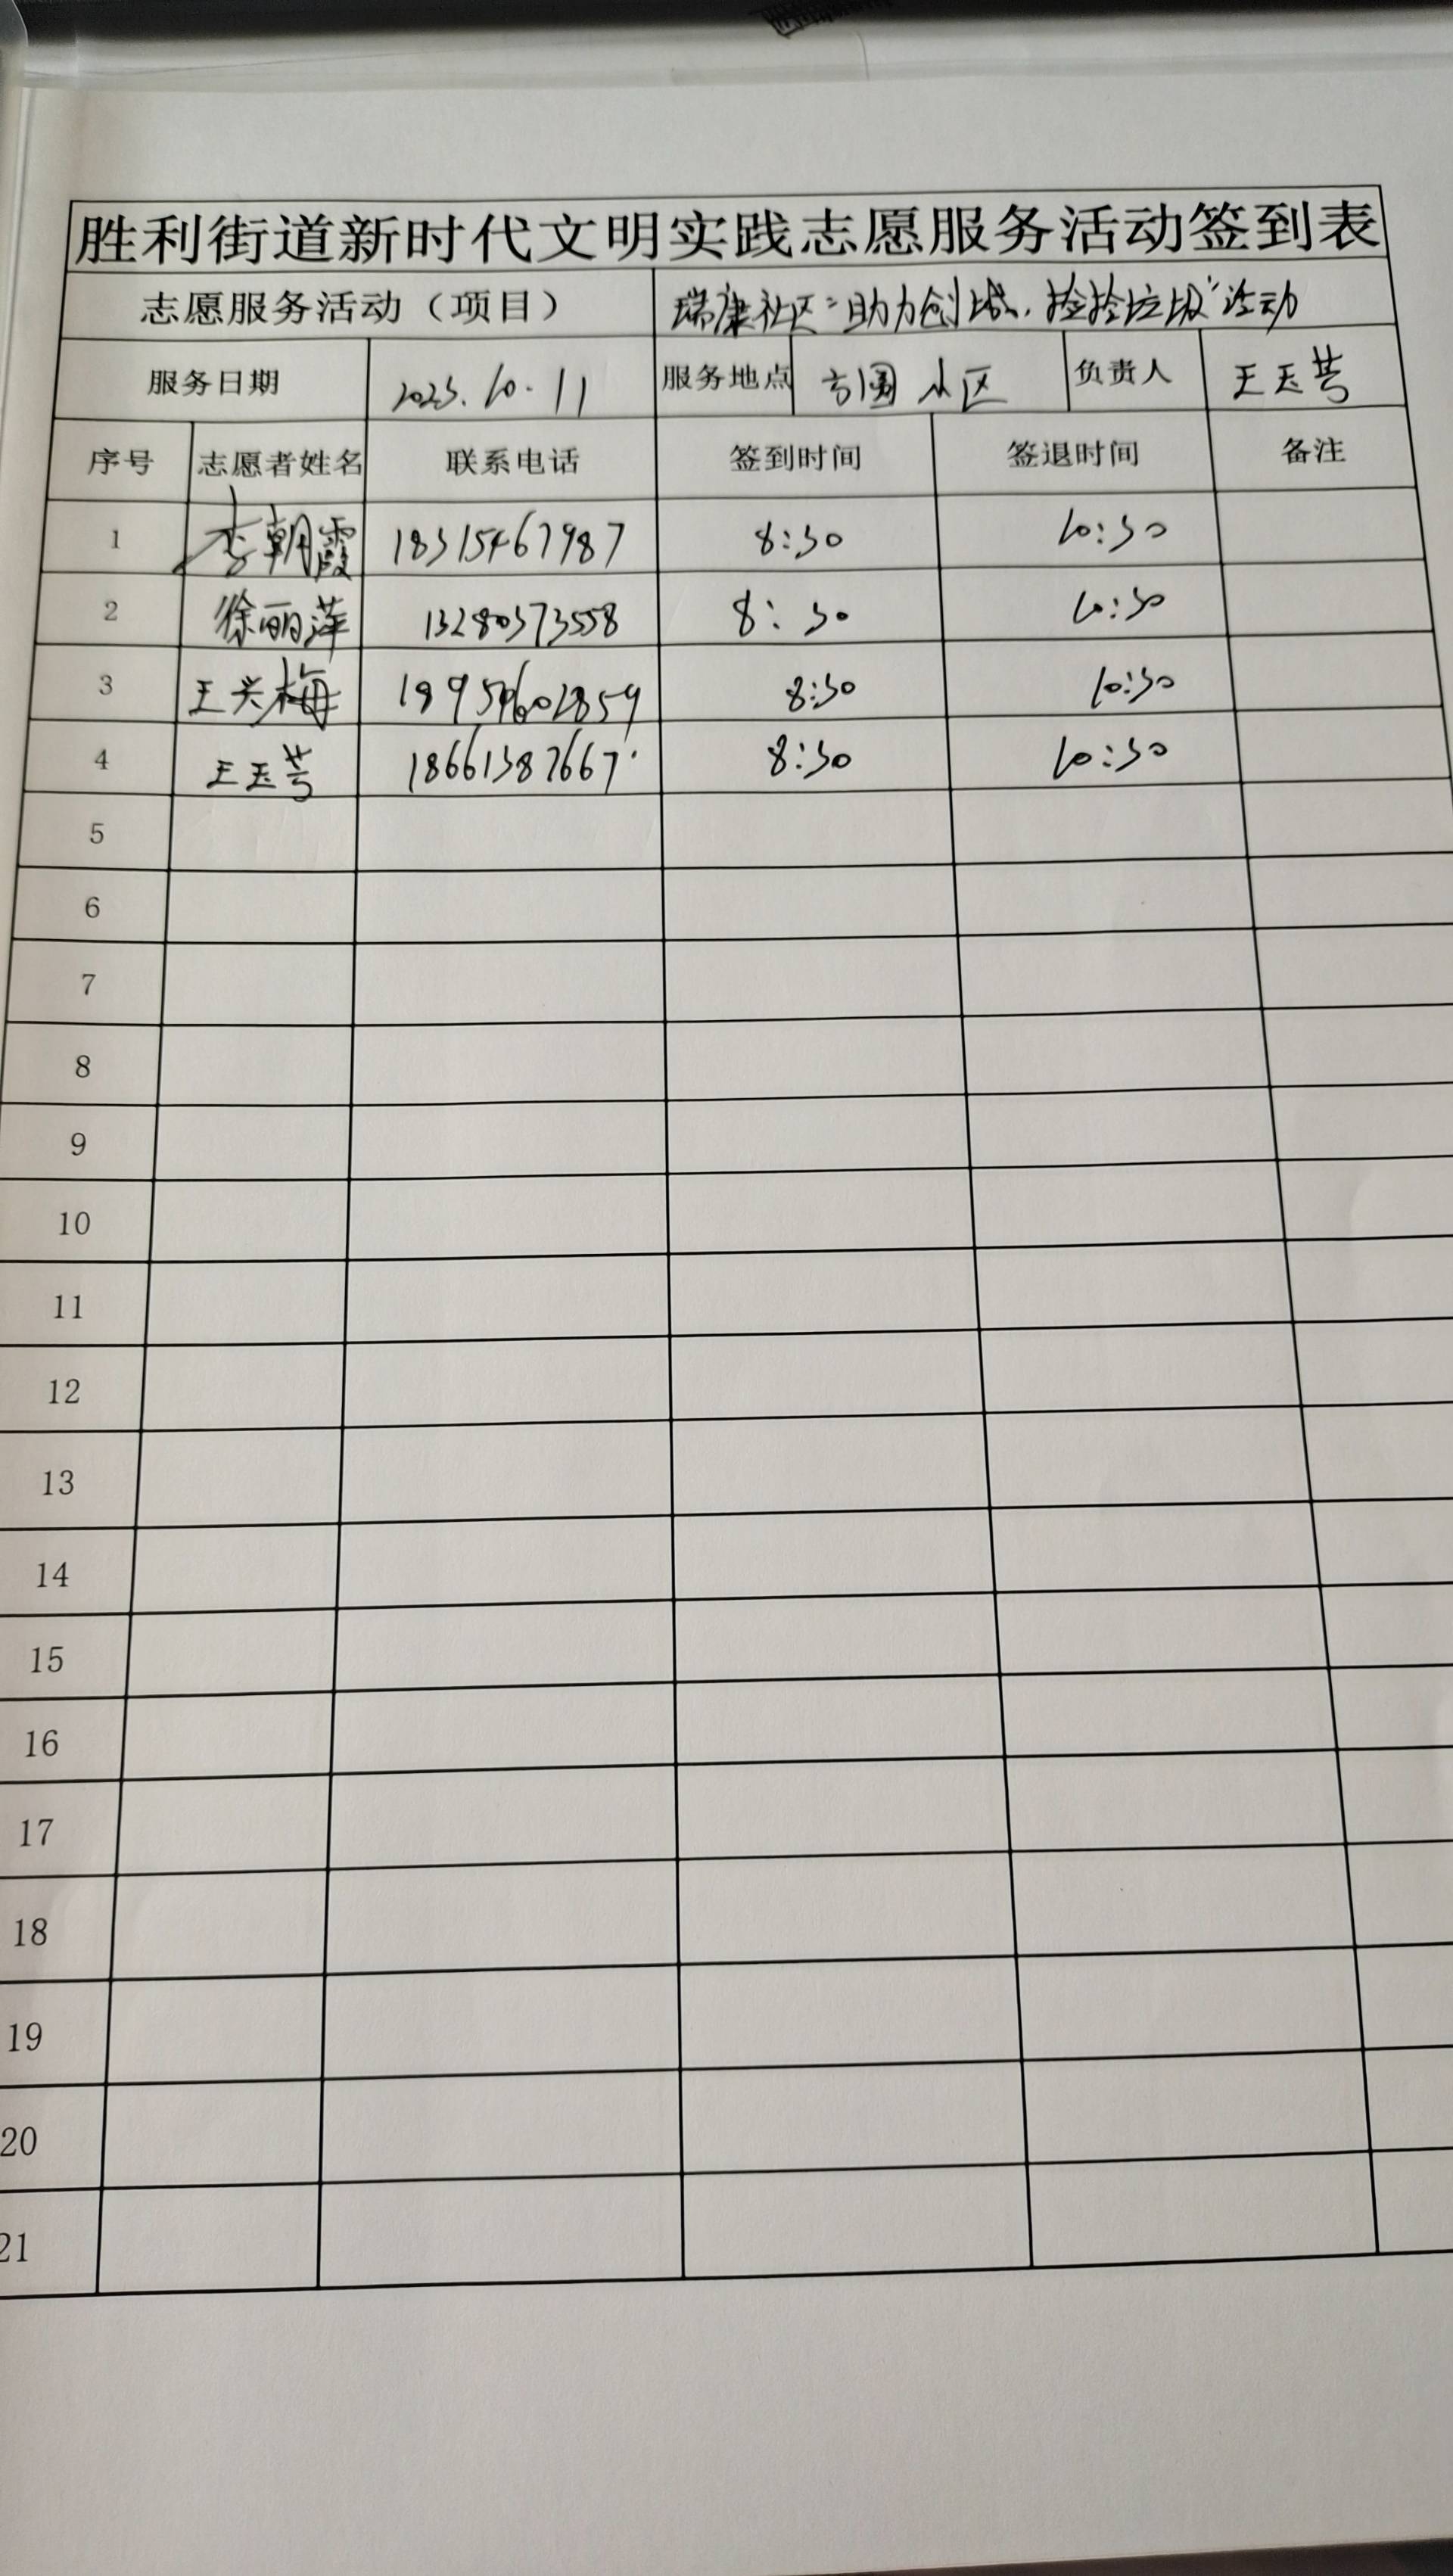 胜利街道新时代文明实践志愿服务活动签到表
志愿服务活动（项目） 瑞康社区“助力创城，捡捡垃圾”活动
服务日期 2023.10.11 服务地点 方圆小区 负责人 王玉芳
序号 志愿者姓名 联系电话 签到时间 签退时间 备注
1 李朝霞 18315467987 8:30 10:30
2 徐丽萍 13280373558 8:30 10:30
3 王兴梅 8:30 10:30
4 王玉芳 18661387667 8:30 10:30
5
6
7
8
9
10
11
12
13
14
15
16
17
18
19
20
21